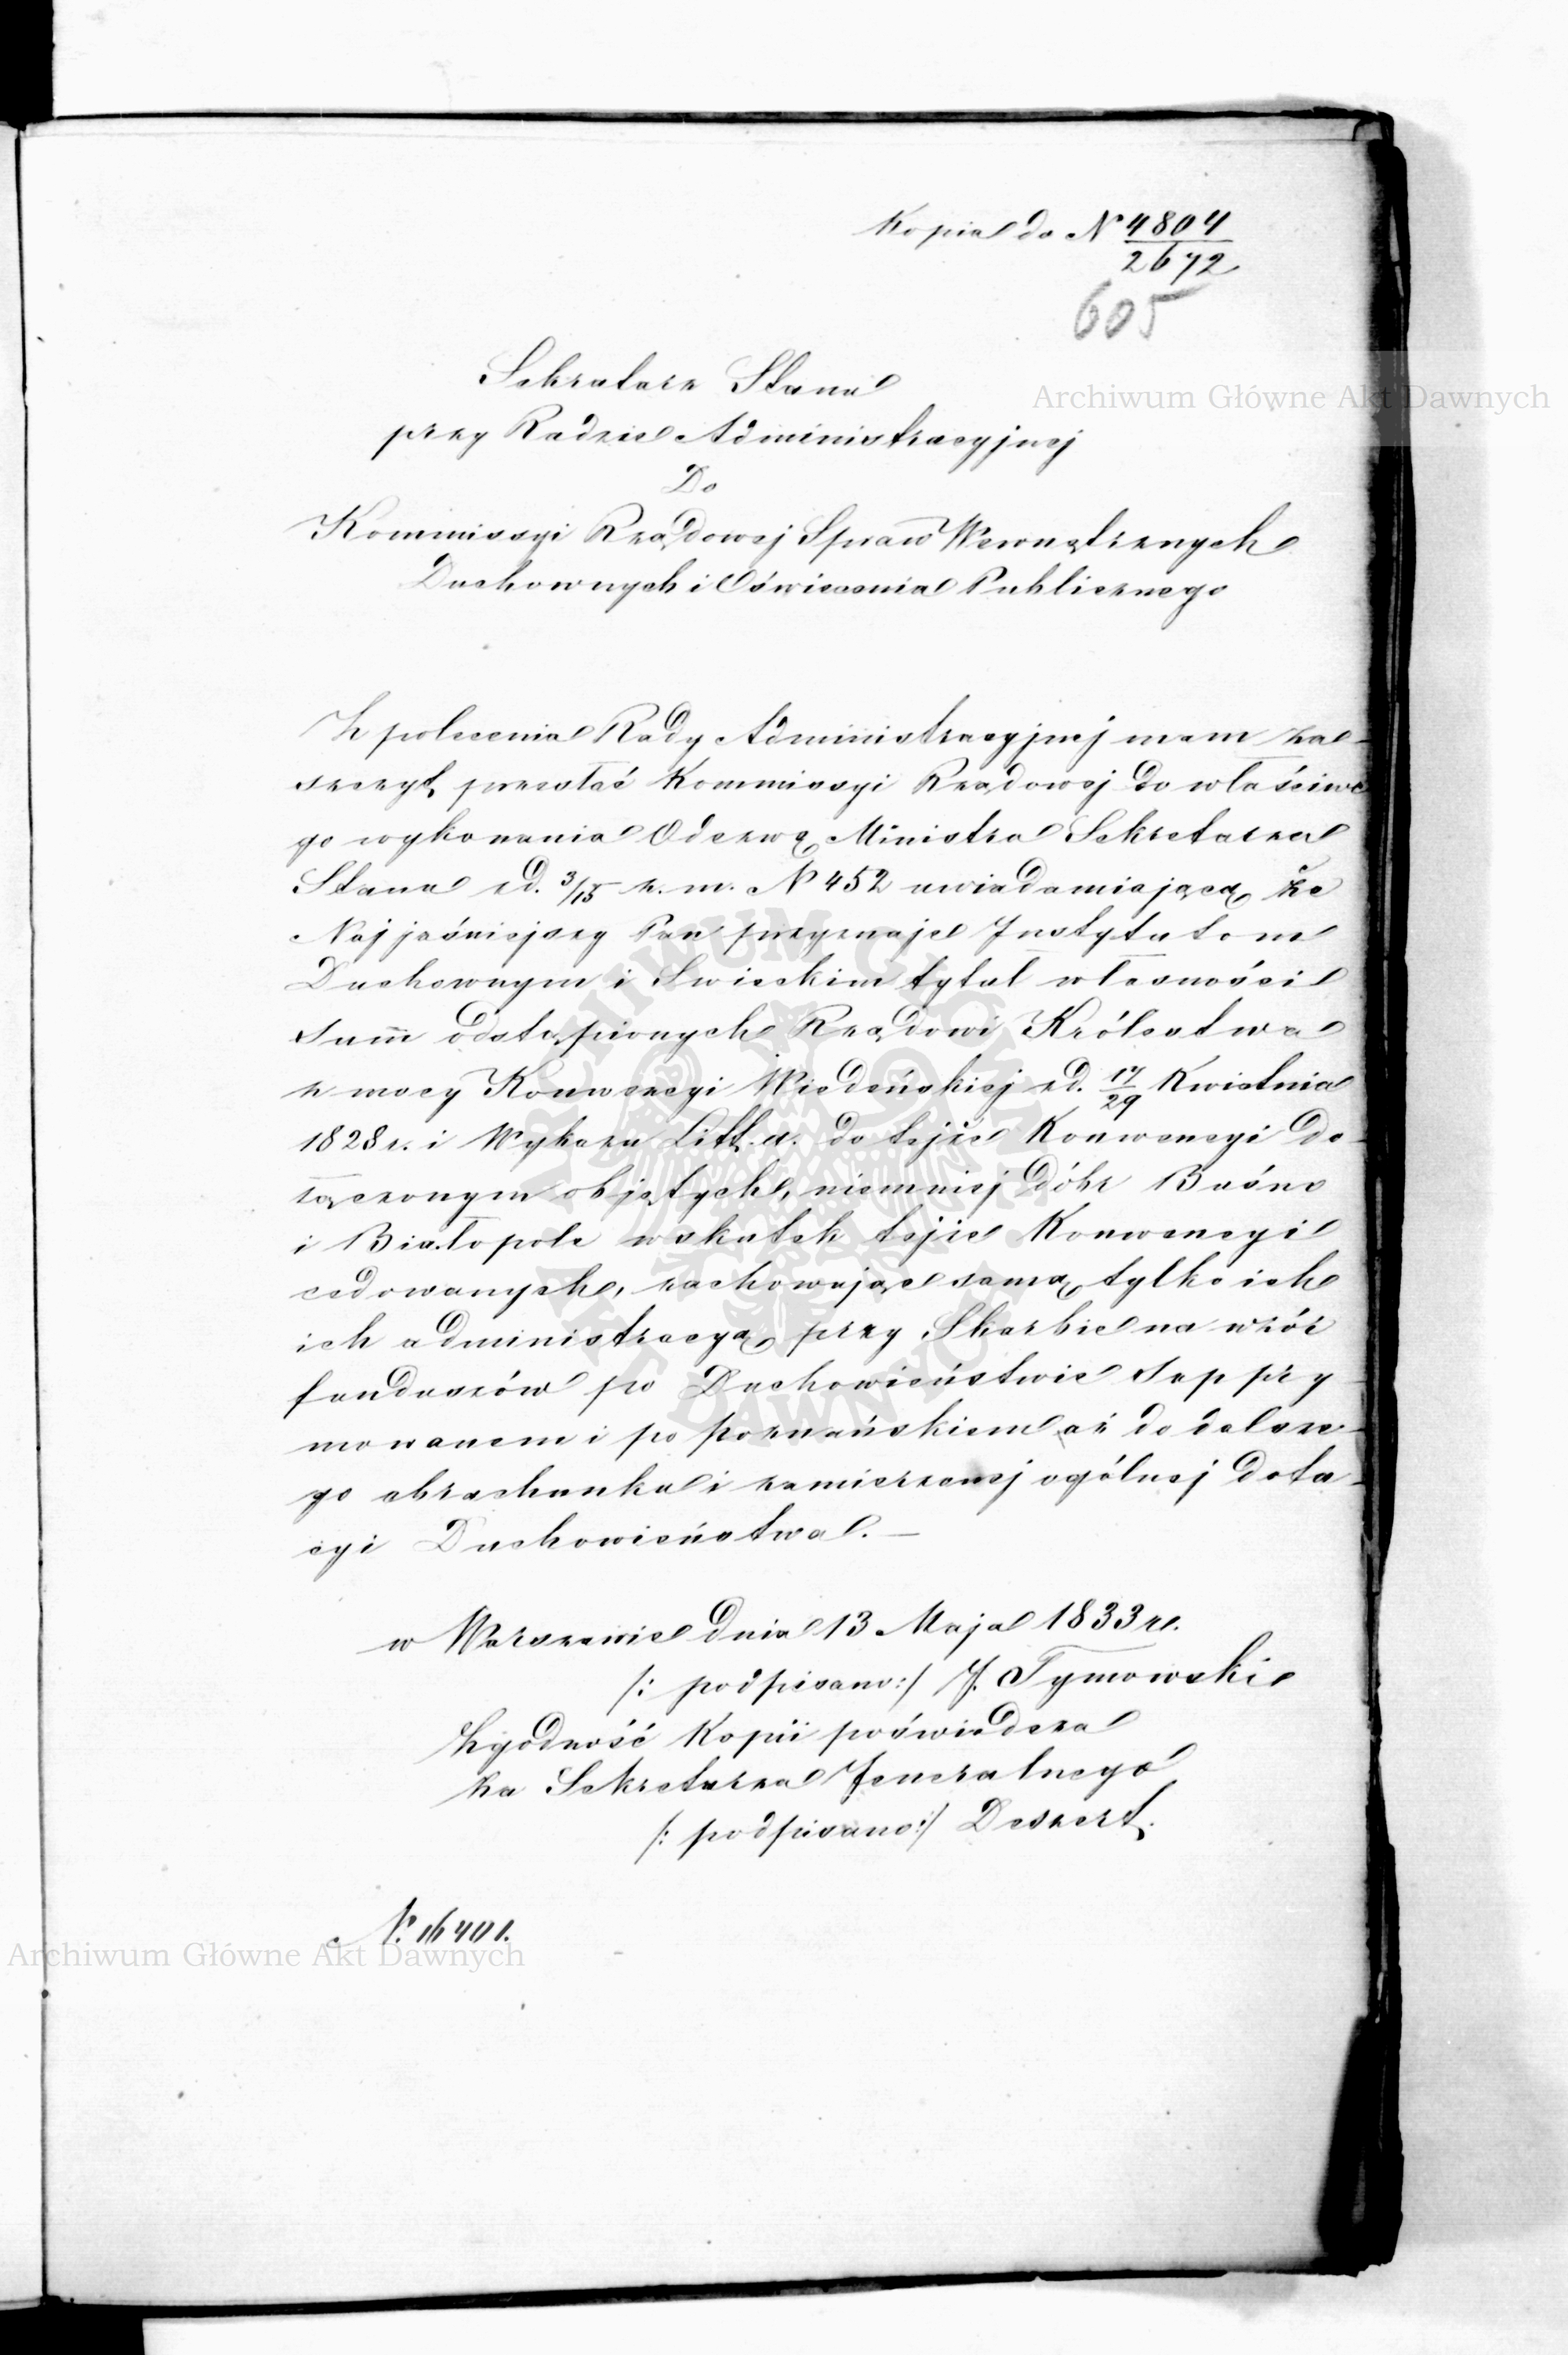 Kopia do N 4804
2672
605
Archiwum Główne Akt Dawnych
Sekretarz Stanu
przy Radzie Administracyjnej
Do
Kommissyi Rządowej Spraw Wewnętrznych
Duchownych i Oświecenia Publicznego
Z polecenia Rady Administracyjnej mam za-
szczyt przesłać Kommissyi Rządowej do właściwe
go wykonania Odezwę Ministra Sekretarza
Stanu z d. 3/15 z. m. N 452 uwiadamiającą że
Najjaśniejszy Pan przyznaje Instytutom
Duchownym i Swieckim tytuł własności
Summ odstąpionych Rządowi Królestwa
z mocy Konwencyi Wiedeńskiej z d. 17/29 Kwietnia
1828 r. i Wykazu Litt. a. do tejże Konwencyi do-
łączonym objętych, niemniej dóbr Buśno
i Białopole wskutek tejże Konwencyi
cedowanych, zachowując samą tylko ich
ich administracyą przy Skarbie na wzór
funduszów po Duchowieństwie Suppry-
mowanem i po poznańskiem aż do dalsze-
go obrachunku i zamierzonej ogólnej dota-
cyi Duchowieństwa. —
w Warszawie dnia 13 Maja 1833 r.
/: podpisano :/ J. Tymowski
Zgodność Kopii poświadcza
za Sekretarza Jeneralnego
/: podpisano :/ Deszert.
N. 16401.
Archiwum Główne Akt Dawnych
ARCHIWUM GŁÓWNE AKT DAWNYCH